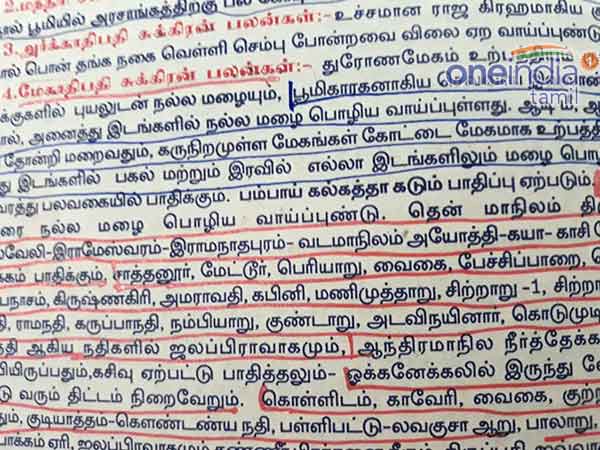 ால் பூமியில் அரசாங்கத்திற்கு பல
3.அர்க்காதிபதி சுக்கிரன் பலன்கள்:- உச்சமான ராஜ கிரஹமாகிய சு
ால் பொன் தங்க நகை வெள்ளி செம்பு போன்றவை விலை ஏற வாய்ப்புண்டு
4.மேகாதிபதி சுக்கிரன் பலன்கள்:- துரோணமேகம் உற்பத்தியாகி
oneindia
tamil
க்குகளில் புயலுடன் நல்ல மழையும், பூமிகாரகனாகிய
ால், அனைத்து இடங்களில் நல்ல மழை பொழிய வாய்ப்புள்ளது.
தோன்றி மறைவதும், கருநிறமுள்ள மேகங்கள் கோட்டை மேகமாக உற்பத்தி
து இடங்களில் பகல் மற்றும் இரவில் எல்லா இடங்களிலும் மழை பொ
வரத்து பலவகையில் பாதிக்கும். பம்பாய் கல்கத்தா கடும் பாதிப்பு ஏற்படும்.
ரை நல்ல மழை பொழிய வாய்ப்புண்டு. தென் மாநிலம் தி
வேலி-இராமேஸ்வரம்-இராமநாதபுரம்- வடமாநிலம் அயோத்தி-கயா- காசி
கம் பாதிக்கும், சாத்தனூர், மேட்டூர், பெரியாறு, வைகை, பேச்சிப்பாறை,
பநாசம், கிருஷ்ணகிரி, அமராவதி, கபினி, மணிமுத்தாறு, சிற்றாறு -1, சிற்றா
தி, ராமநதி, கருப்பாநதி, நம்பியாறு, குண்டாறு, அடவிநயினார், கொடுமுடி
தி ஆகிய நதிகளில் ஜலப்பிரவாகமும், ஆந்திரமாநில நீர்த்தேக்க
பியிருப்பதும்,கசிவு ஏற்பட்டு பாதித்தலும்- ஒக்கனேக்கலில் இருந்து வே
டு வரும் திட்டம் நிறைவேறும். கொள்ளிடம், காவேரி, வைகை, குற்
தும், குடியாத்தம்-கௌண்டண்ய நதி, பள்ளிபட்டு-லவகுசா ஆறு, பாலாறு,
பாக்கம் ஏரி, ஜலப்பிரவாகமும்